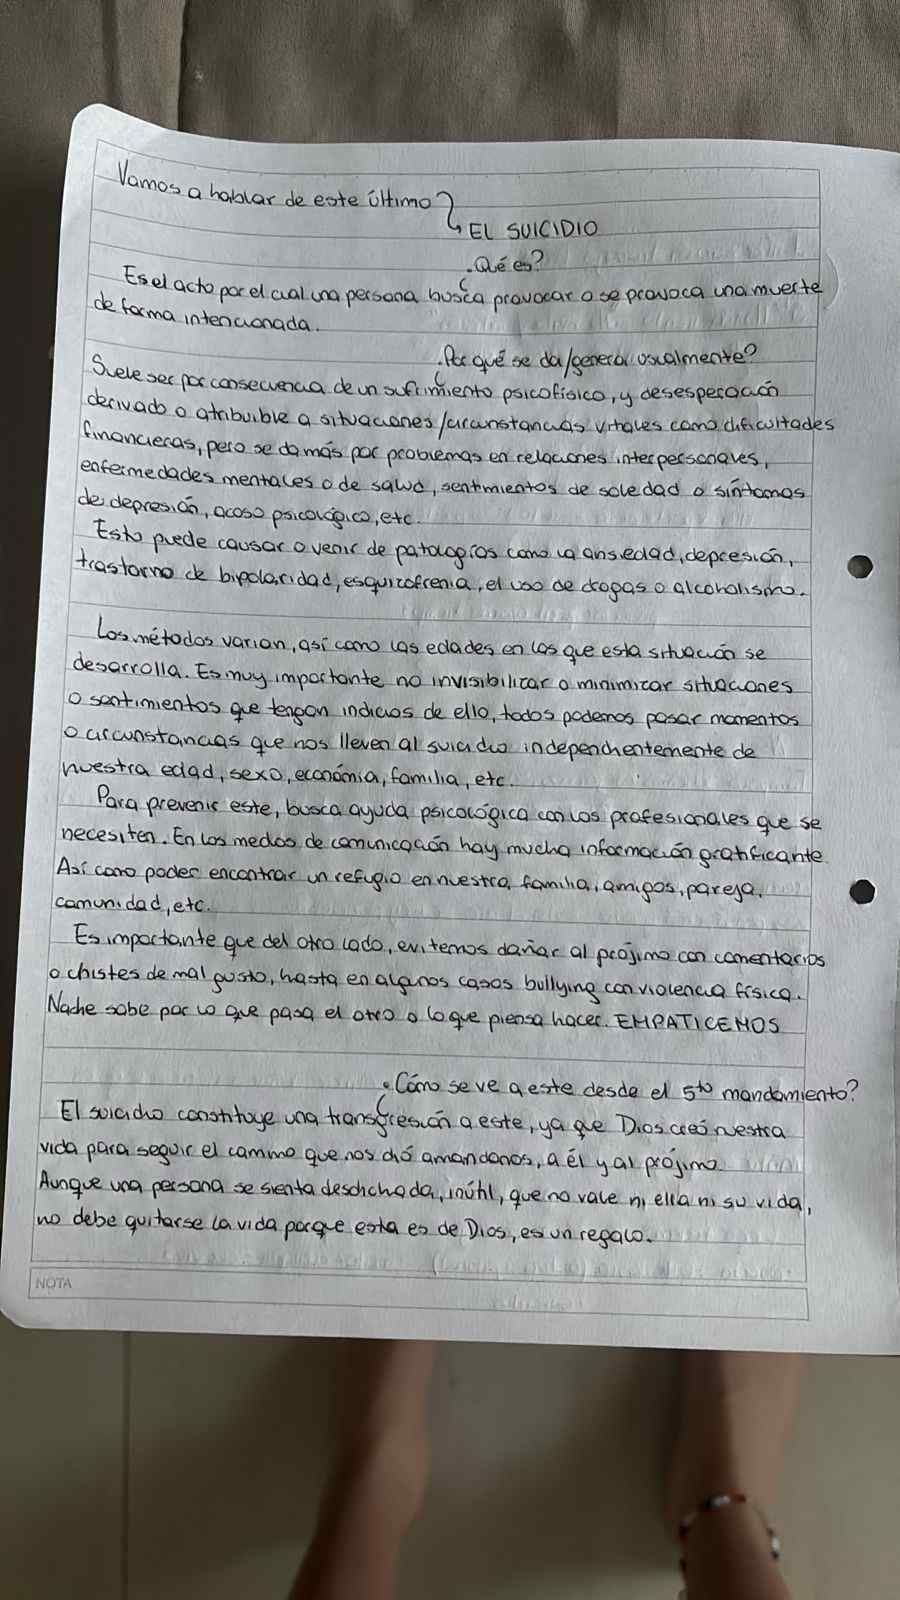 Vamos a hablar de este último
EL SUICIDIO
¿Qué es?
Es el acto por el cual una persona busca provocar o se provoca una muerte
de forma intencionada.
¿Por qué se da/genera usualmente?
Suele ser por consecuencia de un sufrimiento psicofísico, y desesperación
derivado o atribuible a situaciones/circunstancias vitales como dificultades
financieras, pero se da más por problemas en relaciones interpersonales,
enfermedades mentales o de salud, sentimientos de soledad o síntomas
de depresión, acoso psicológico, etc.
Esto puede causar o venir de patologías como la ansiedad, depresión,
trastorno de bipolaridad, esquizofrenia, el uso de drogas o alcoholismo.
Los métodos varian, así como las edades en las que esta situación se
desarrolla. Es muy importante no invisibilizar o minimizar situaciones
o sentimientos que tengan indicios de ello, todos podemos pasar momentos
o circunstancias que nos lleven al suicidio independientemente de
nuestra edad, sexo, económia, familia, etc.
Para prevenir este, busca ayuda psicológica con los profesionales que se
necesiten. En los medios de comunicación hay mucha información gratificante.
Así como poder encontrar un refugio en nuestra familia, amigos, pareja,
comunidad, etc.
Es importante que del otro lado, evitemos dañar al prójimo con comentarios
o chistes de mal gusto, hasta en algunos casos bullying con violencia física.
Nadie sabe por lo que pasa el otro o lo que piensa hacer. EMPATICEMOS
¿Cómo se ve a este desde el 5to mandamiento?
El suicidio constituye una transgresión a este, ya que Dios creó nuestra
vida para seguir el camino que nos dió amandonos, a él y al prójimo.
Aunque una persona se sienta desdichada, inútil, que no vale ni ella ni su vida,
no debe quitarse la vida porque esta es de Dios, es un regalo.
NOTA